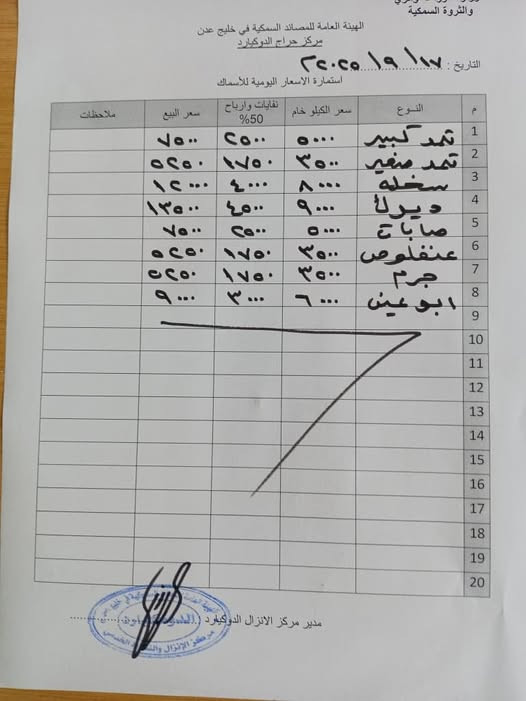 والثروة السمكية
الهيئة العامة للمصائد السمكية في خليج عدن
مركز حراج الدوكيارد
التاريخ : ١٧ / ٩ / ٢٠٢٥
استمارة الاسعار اليومية للأسماك
م النوع سعر الكيلو خام نفايات وارباح 50% سعر البيع ملاحظات
1 ثمد كبير ٥٠٠٠ ٢٥٠٠ ٧٥٠٠
2 ثمد صغير ٣٥٠٠ ١٧٥٠ ٥٢٥٠
3 سخله ٨٠٠٠ ٤٠٠٠ ١٢٠٠٠
4 ديرك ٩٠٠٠ ٤٥٠٠ ١٣٥٠٠
5 صابات ٥٠٠٠ ٢٥٠٠ ٧٥٠٠
6 عنفلوص ٣٥٠٠ ١٧٥٠ ٥٢٥٠
7 جرم ٣٥٠٠ ١٧٥٠ ٥٢٥٠
8 ابو عين ٦٠٠٠ ٣٠٠٠ ٩٠٠٠
9
10
11
12
13
14
15
16
17
18
19
20
مدير مركز الانزال الدوكيارد :